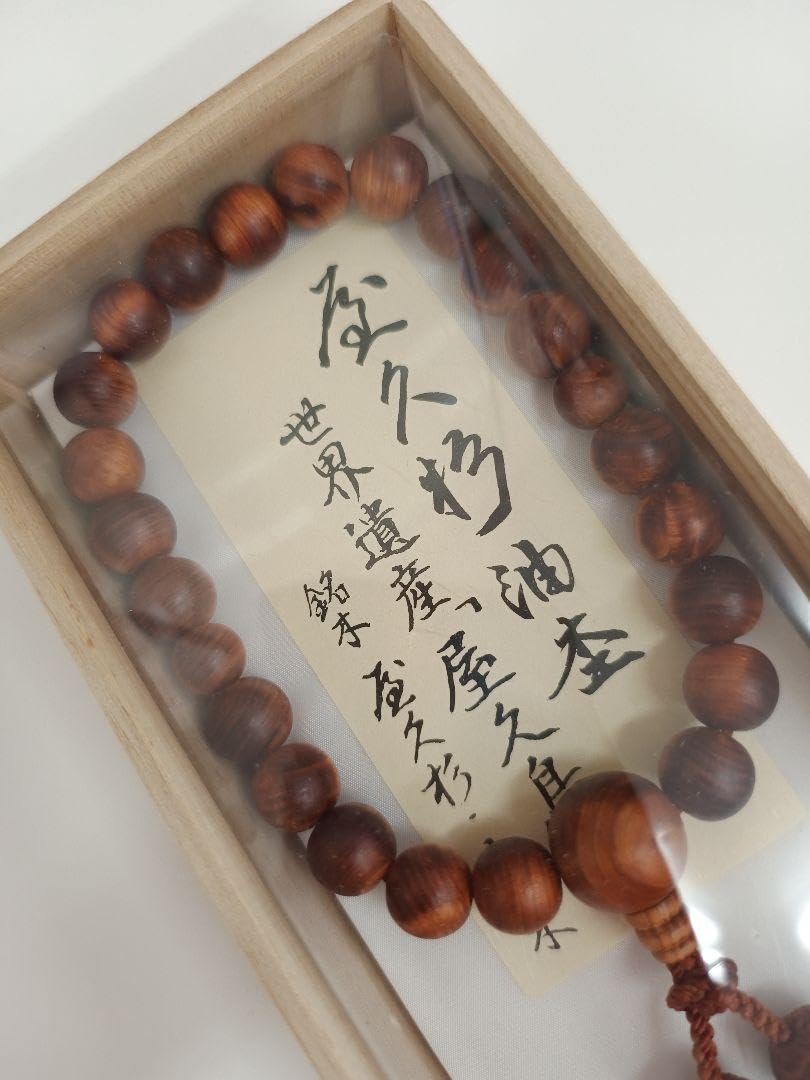 屋久杉 油杢
世界遺産「屋久島
銘木 屋久杉